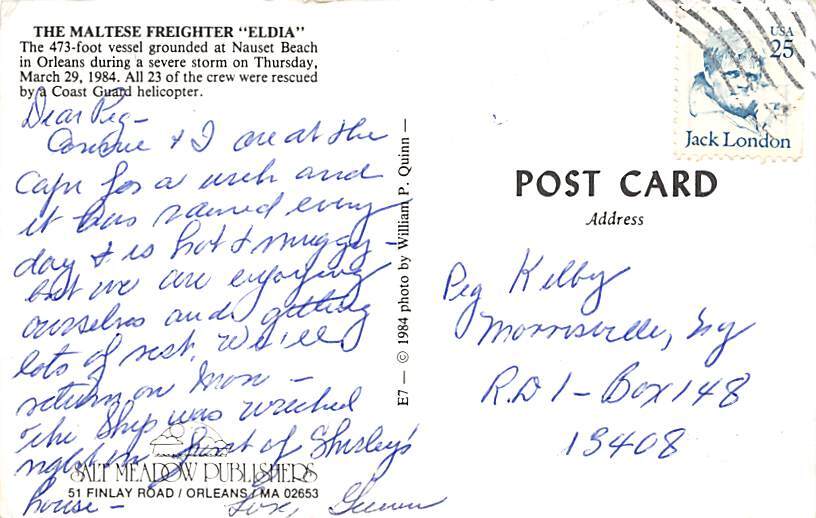 THE MALTESE FREIGHTER "ELDIA"
The 473-foot vessel grounded at Nauset Beach
in Orleans during a severe storm on Thursday,
March 29, 1984. All 23 of the crew were rescued
by a Coast Guard helicopter.
Dear Peg –
& I are at the
Cape for a week and
it has rained every
day & is hot & muggy –
but we are enjoying
ourselves and getting
lots of rest. We'll
return on Mon –
The Ship was wrecked
right in front of Shirley's
house –
Love,
SALT MEADOW PUBLISHERS
51 FINLAY ROAD / ORLEANS / MA 02653
E7 — © 1984 photo by William P. Quinn —
USA
25
Jack London
POST CARD
Address
Peg Kelby
Morrisville, Ny
R.D 1 – Box 148
13408